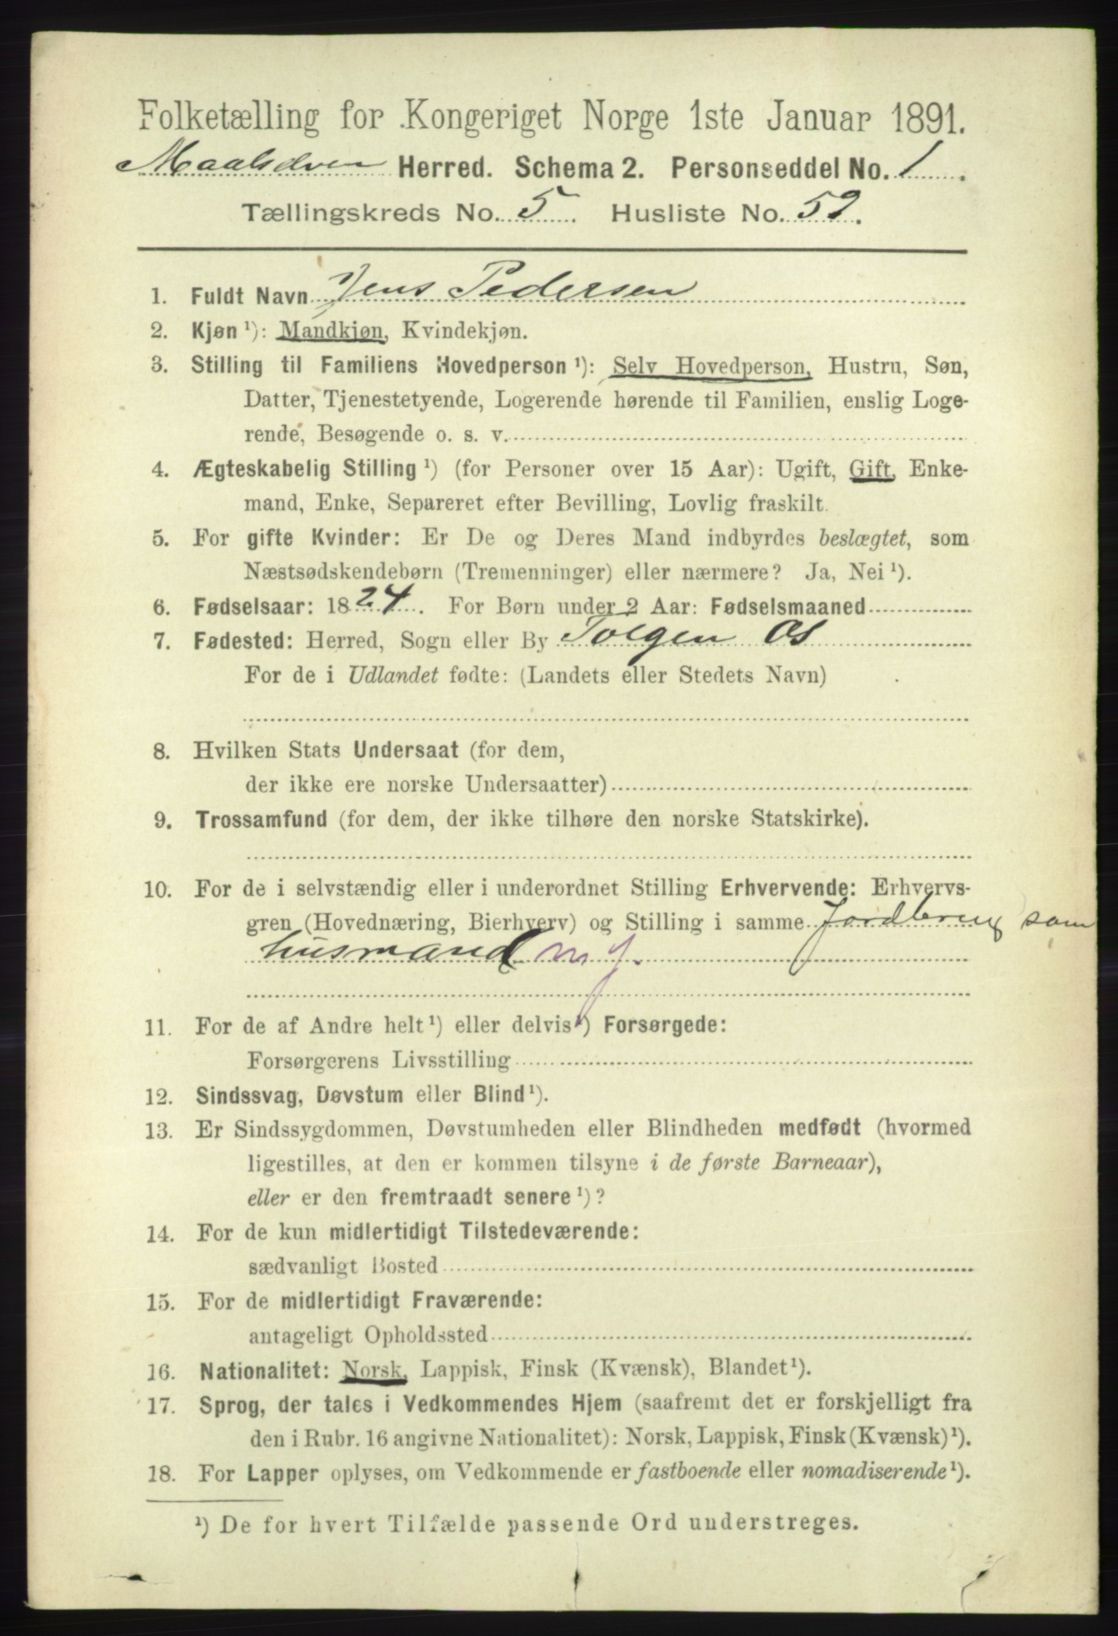 Folketælling for Kongeriget Norge 1ste Januar 1891.
Maalselven Herred. Schema 2. Personseddel No. 1.
Tællingskreds No. 5. Husliste No. 52.
1. Fuldt Navn Jens Pedersen
2. Kjøn ¹): Mandkjøn, Kvindekjøn.
3. Stilling til Familiens Hovedperson ¹): Selv Hovedperson, Hustru, Søn,
Datter, Tjenestetyende, Logerende hørende til Familien, enslig Loge-
rende, Besøgende o. s. v.
4. Ægteskabelig Stilling ¹) (for Personer over 15 Aar): Ugift, Gift, Enke-
mand, Enke, Separeret efter Bevilling, Lovlig fraskilt.
5. For gifte Kvinder: Er De og Deres Mand indbyrdes beslægtet, som
Næstsødskendebørn (Tremenninger) eller nærmere? Ja, Nei ¹).
6. Fødselsaar: 1824. For Børn under 2 Aar: Fødselsmaaned
7. Fødested: Herred, Sogn eller By Tolgen Os
For de i Udlandet fødte: (Landets eller Stedets Navn)
8. Hvilken Stats Undersaat (for dem,
der ikke ere norske Undersaatter)
9. Trossamfund (for dem, der ikke tilhøre den norske Statskirke).
10. For de i selvstændig eller i underordnet Stilling Erhvervende: Erhvervs-
gren (Hovednæring, Bierhverv) og Stilling i samme Jordbrug som
husmand m j.
11. For de af Andre helt ¹) eller delvis ¹) Forsørgede:
Forsørgerens Livsstilling
12. Sindssvag, Døvstum eller Blind ¹).
13. Er Sindssygdommen, Døvstumheden eller Blindheden medfødt (hvormed
ligestilles, at den er kommen tilsyne i de første Barneaar),
eller er den fremtraadt senere ¹)?
14. For de kun midlertidigt Tilstedeværende:
sædvanligt Bosted
15. For de midlertidigt Fraværende:
antageligt Opholdssted
16. Nationalitet: Norsk, Lappisk, Finsk (Kvænsk), Blandet ¹).
17. Sprog, der tales i Vedkommendes Hjem (saafremt det er forskjelligt fra
den i Rubr. 16 angivne Nationalitet): Norsk, Lappisk, Finsk (Kvænsk) ¹).
18. For Lapper oplyses, om Vedkommende er fastboende eller nomadiserende ¹).
¹) De for hvert Tilfælde passende Ord understreges.